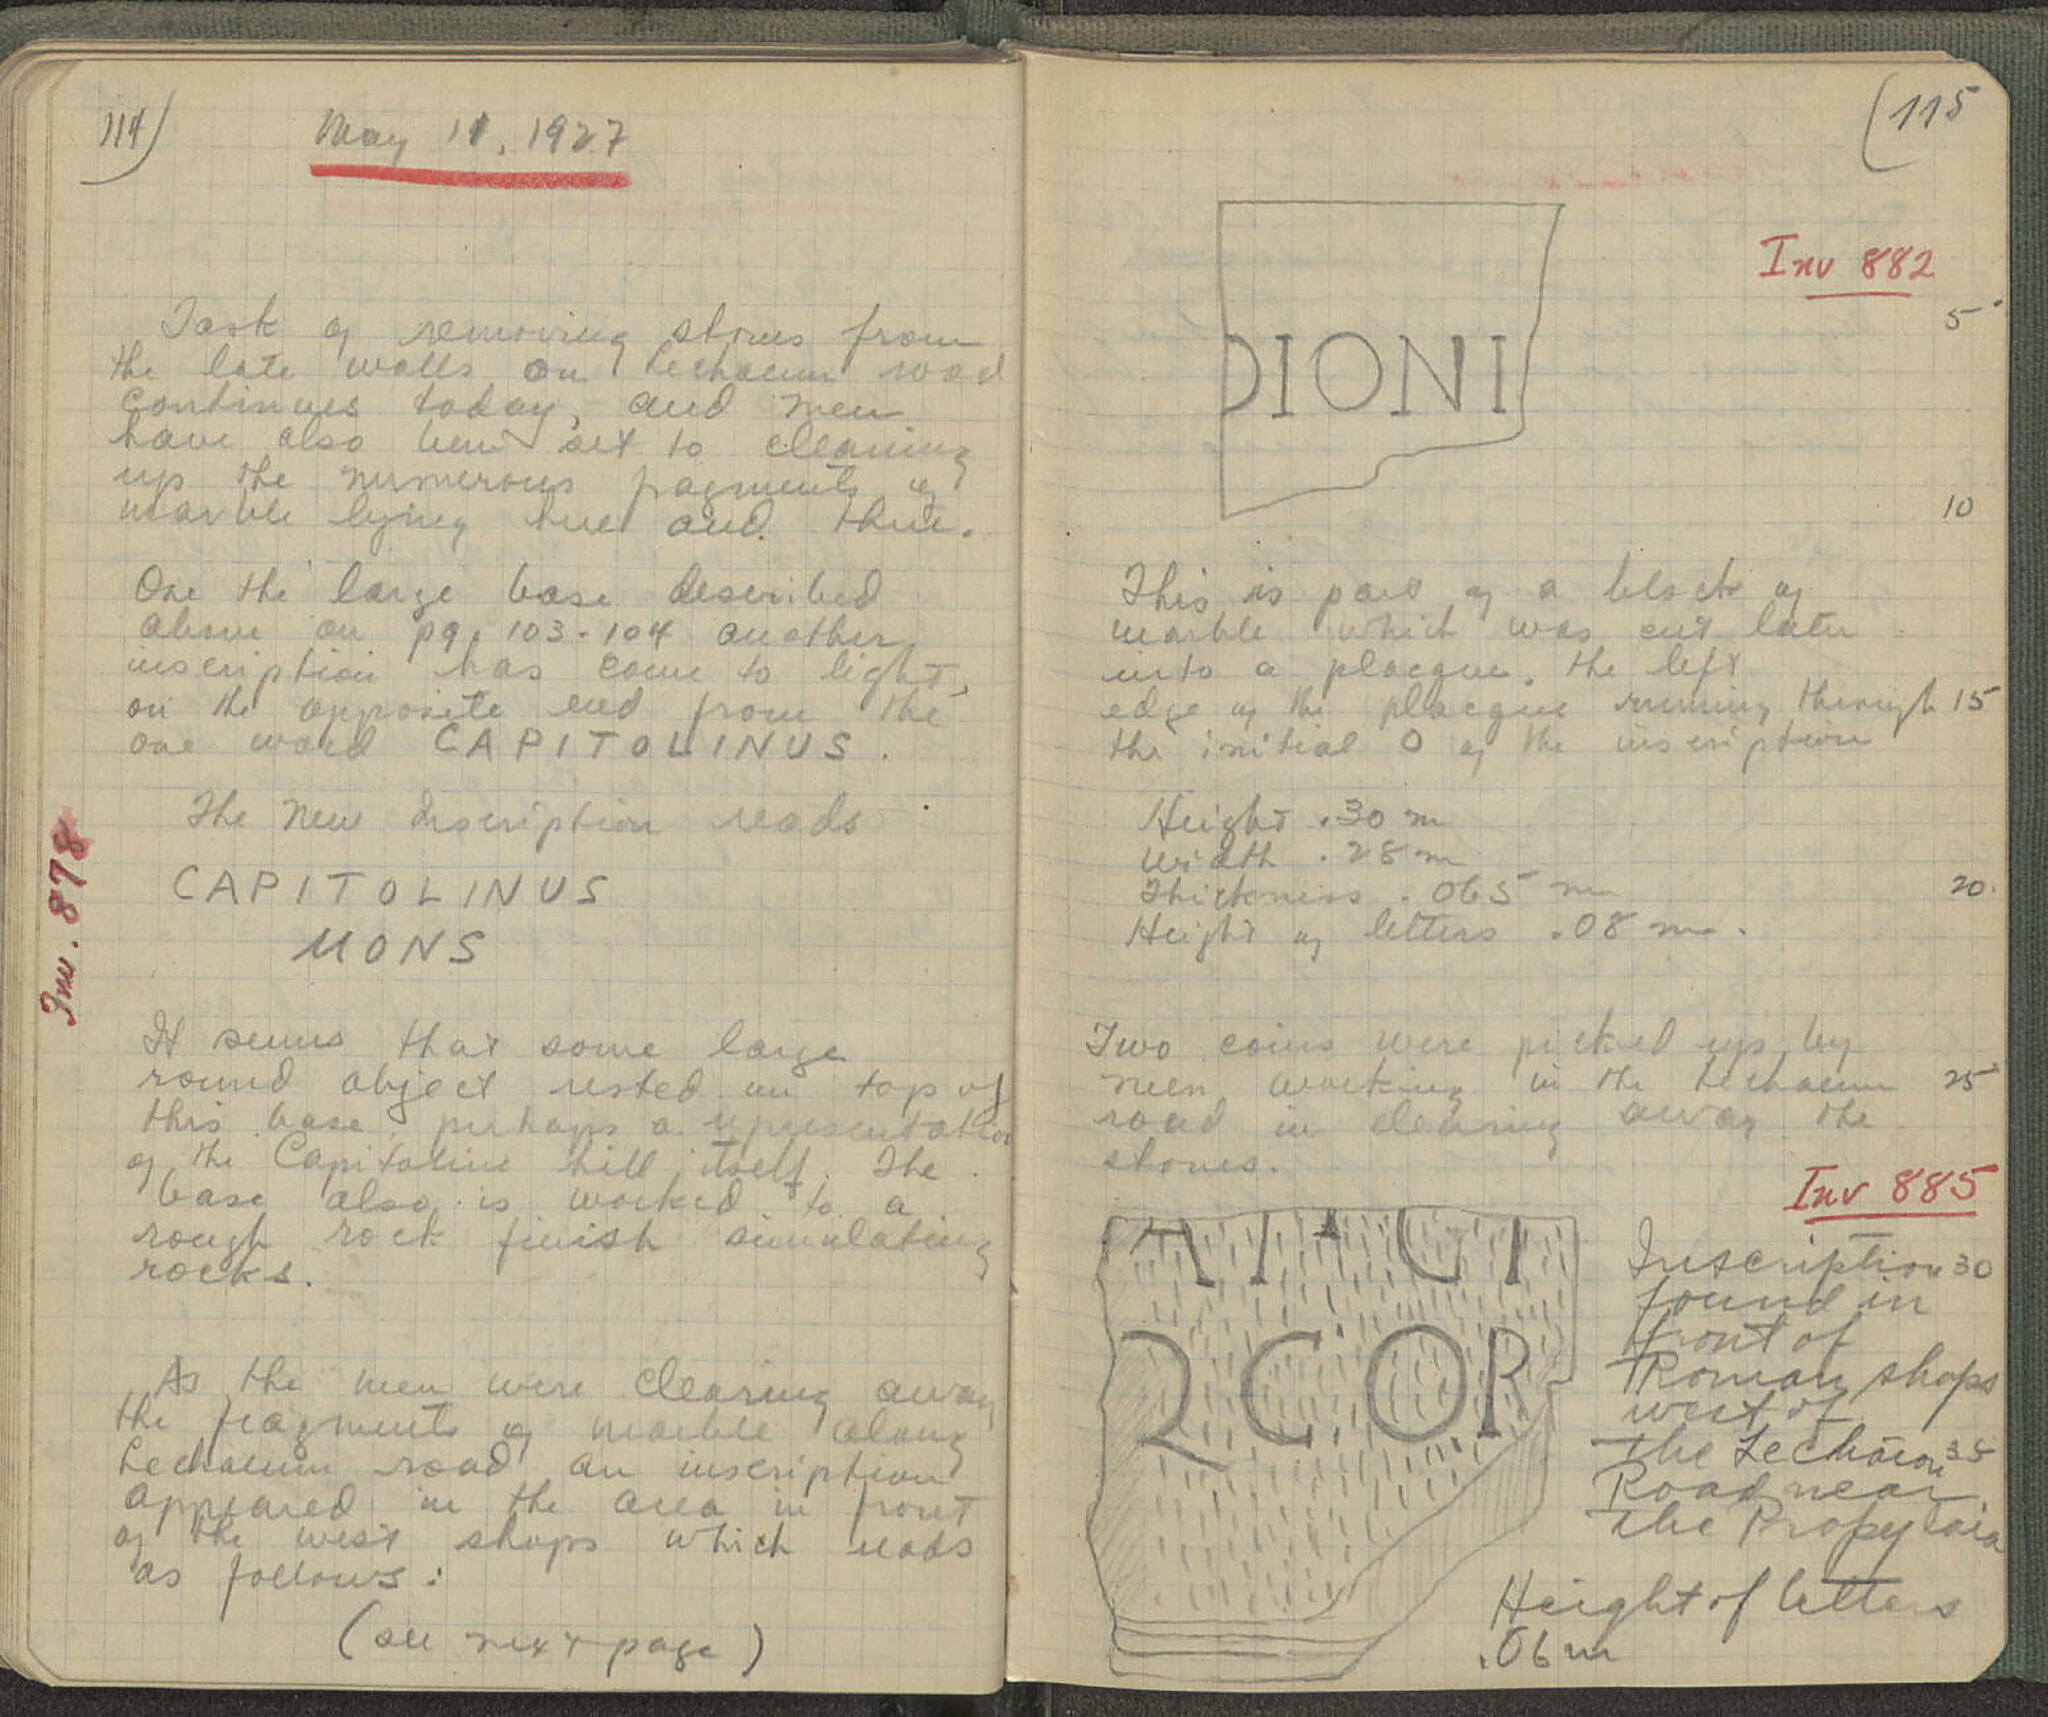 114)
May 11, 1927
Task of removing stones from
the late walls on Lechaeum road
continues today, and men
have also been set to cleaning
up the numerous fragments of
marble lying here and there.
One the large base described
above on pg. 103-104 another
inscription has come to light,
on the opposite end from the
one word CAPITOLINUS.
The new inscription reads
CAPITOLINUS
MONS
Inv. 878
It seems that some large
round object rested on top of
this base, perhaps a representation
of the Capitoline hill itself. The
base also is worked to a
rough rock finish simulating
rocks.
As the men were clearing away
the fragments of marble along
Lechaeum road an inscription
appeared in the area in front
of the west shops which reads
as follows:
(see next page)
(115
Inv 882
5
DIONI
10
This is part of a block of
marble which was cut later
into a placque, the left
edge of the placque running through 15
the initial O of the inscription
Height .30 m
Width .28 m
Thickness .065 m
20
Height of letters .08 m.
Two coins were picked up by
men working in the Lechaeum 25
road in clearing away the
stones.
Inv 885
QCOR
Inscription 30
found in
front of
Roman shops
west of
the Lechaion 35
Road near
the Propylaia
Height of letters
.06 m